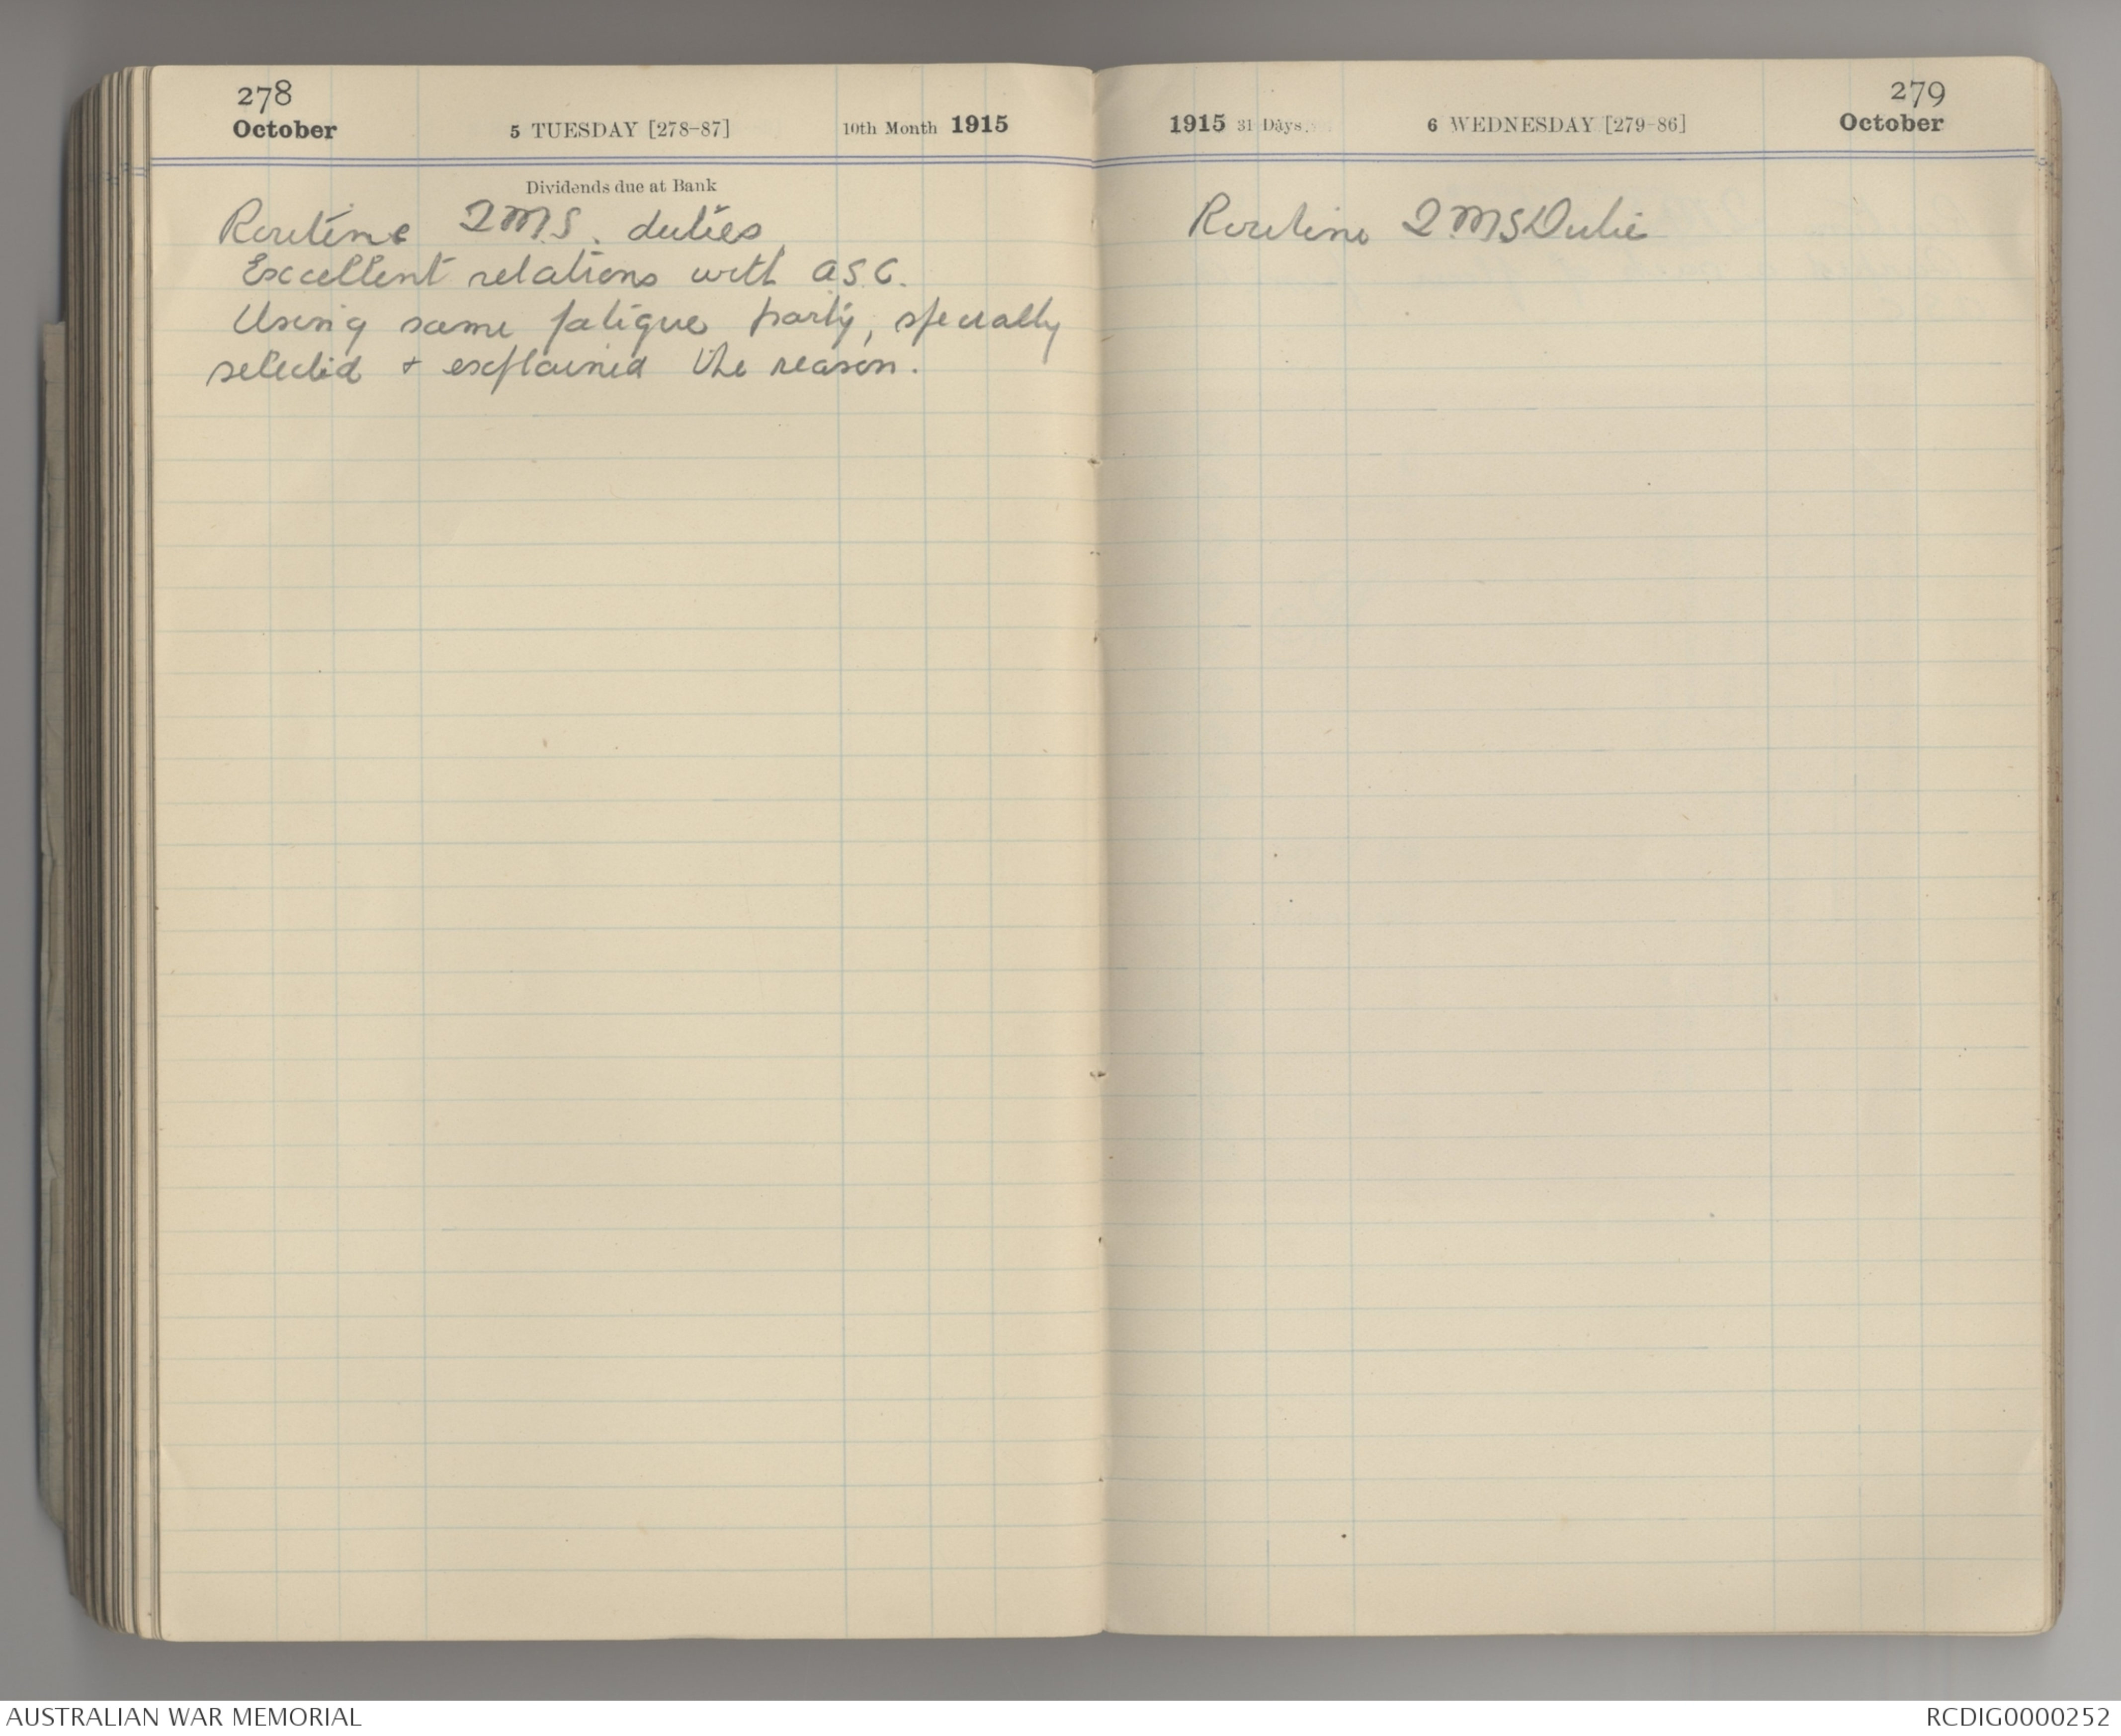 278
October
5 TUESDAY [278-87]
10th Month 1915
Dividends due at Bank
Routine QMS. duties
Excellent relations with ASC.
Using same fatigue party, specially
selected + explained the reason.
279
1915 31 Days
6 WEDNESDAY [279-86]
October
Routine QMS Dutie
AUSTRALIAN WAR MEMORIAL
RCDIG0000252